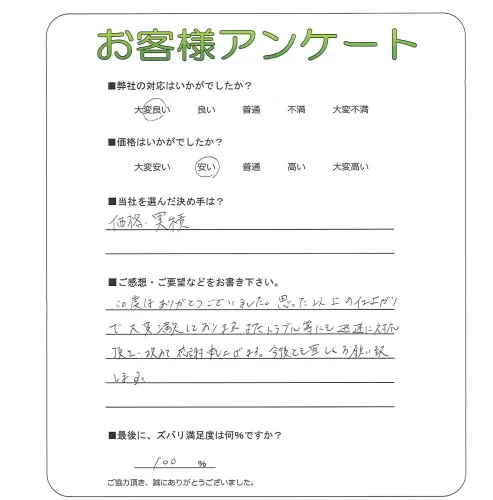 お客様アンケート
■弊社の対応はいかがでしたか？
大変良い 良い 普通 不満 大変不満
■価格はいかがでしたか？
大変安い 安い 普通 高い 大変高い
■当社を選んだ決め手は？
価格・実績
■ご感想・ご要望などをお書き下さい。
この度はありがとうございました。思った以上の仕上がり
で大変満足しております。またトラブル等にも迅速に対応
頂き、改めて感謝申し上げます。今後とも宜しくお願い致
します。
■最後に、ズバリ満足度は何%ですか？
100 %
ご協力頂き、誠にありがとうございました。